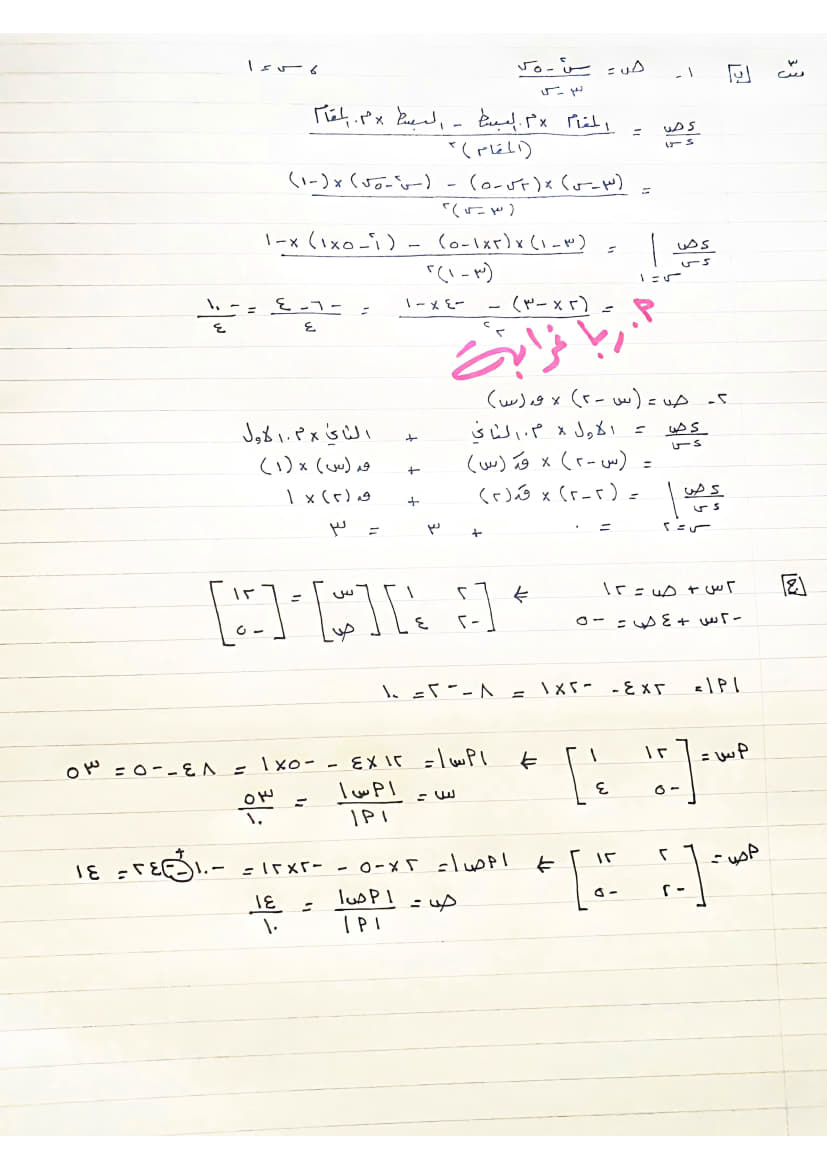 س٣ ب ١- ص = س٢ - ٥س / ٣ - س ، س = ١
دص/دس = المقام × م.البسط - البسط × م.المقام / (المقام)٢
= (٣-س)×(٢س-٥) - (س٢-٥س)×(-١) / (٣-س)٢
دص/دس | س=١ = (٣-١)×(٢×١-٥) - (١٢-٥×١)×-١ / (٣-١)٢
= (٢×-٣) - -٤×-١ / ٢٢ = -٦-٤ / ٤ = -١٠ / ٤
م. ربا غرابة
٢- ص = (س-٢) × ق(س)
دص/دس = الاول × م.الثاني + الثاني × م.الاول
= (س-٢) × قَ(س) + ق(س)×(١)
دص/دس | س=٢ = (٢-٢) × قَ(٢) + ق(٢)×١
= ٠ + ٣ = ٣
ج ٢س + ص = ١٢ ⇐ [٢ ١] [س] = [١٢]
-٢س + ٤ص = -٥ [-٢ ٤] [ص] [-٥]
|A| = ٢×٤ - -٢×١ = ٨ - -٢ = ١٠
Aس = [١٢ ١] ⇐ |Aس| = ١٢×٤ - -٥×١ = ٤٨ - -٥ = ٥٣
[-٥ ٤] س = |Aس| / |A| = ٥٣ / ١٠
Aص = [٢ ١٢] ⇐ |Aص| = ٢×-٥ - -٢×١٢ = -١٠ - -٢٤ = ١٤
[-٢ -٥] ص = |Aص| / |A| = ١٤ / ١٠